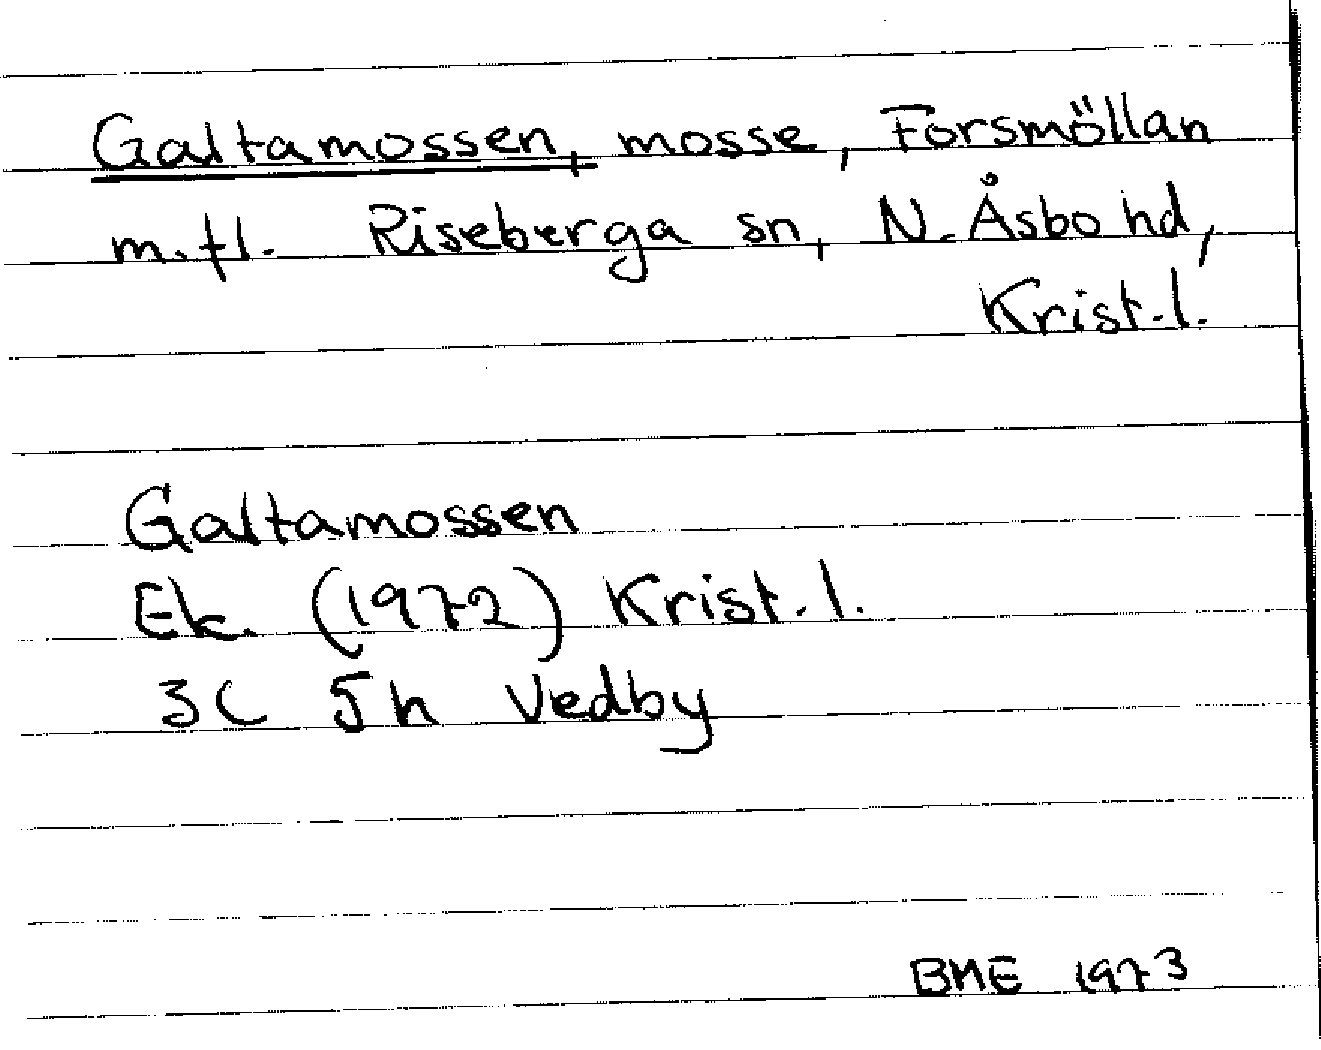 Galtamossen, mosse, Forsmöllan
m.fl. Riseberga sn, N. Åsbo hd,
Krist.l.
Galtamossen
Ek. (1972) Krist.l.
3C 5h Vedby
BME 1973